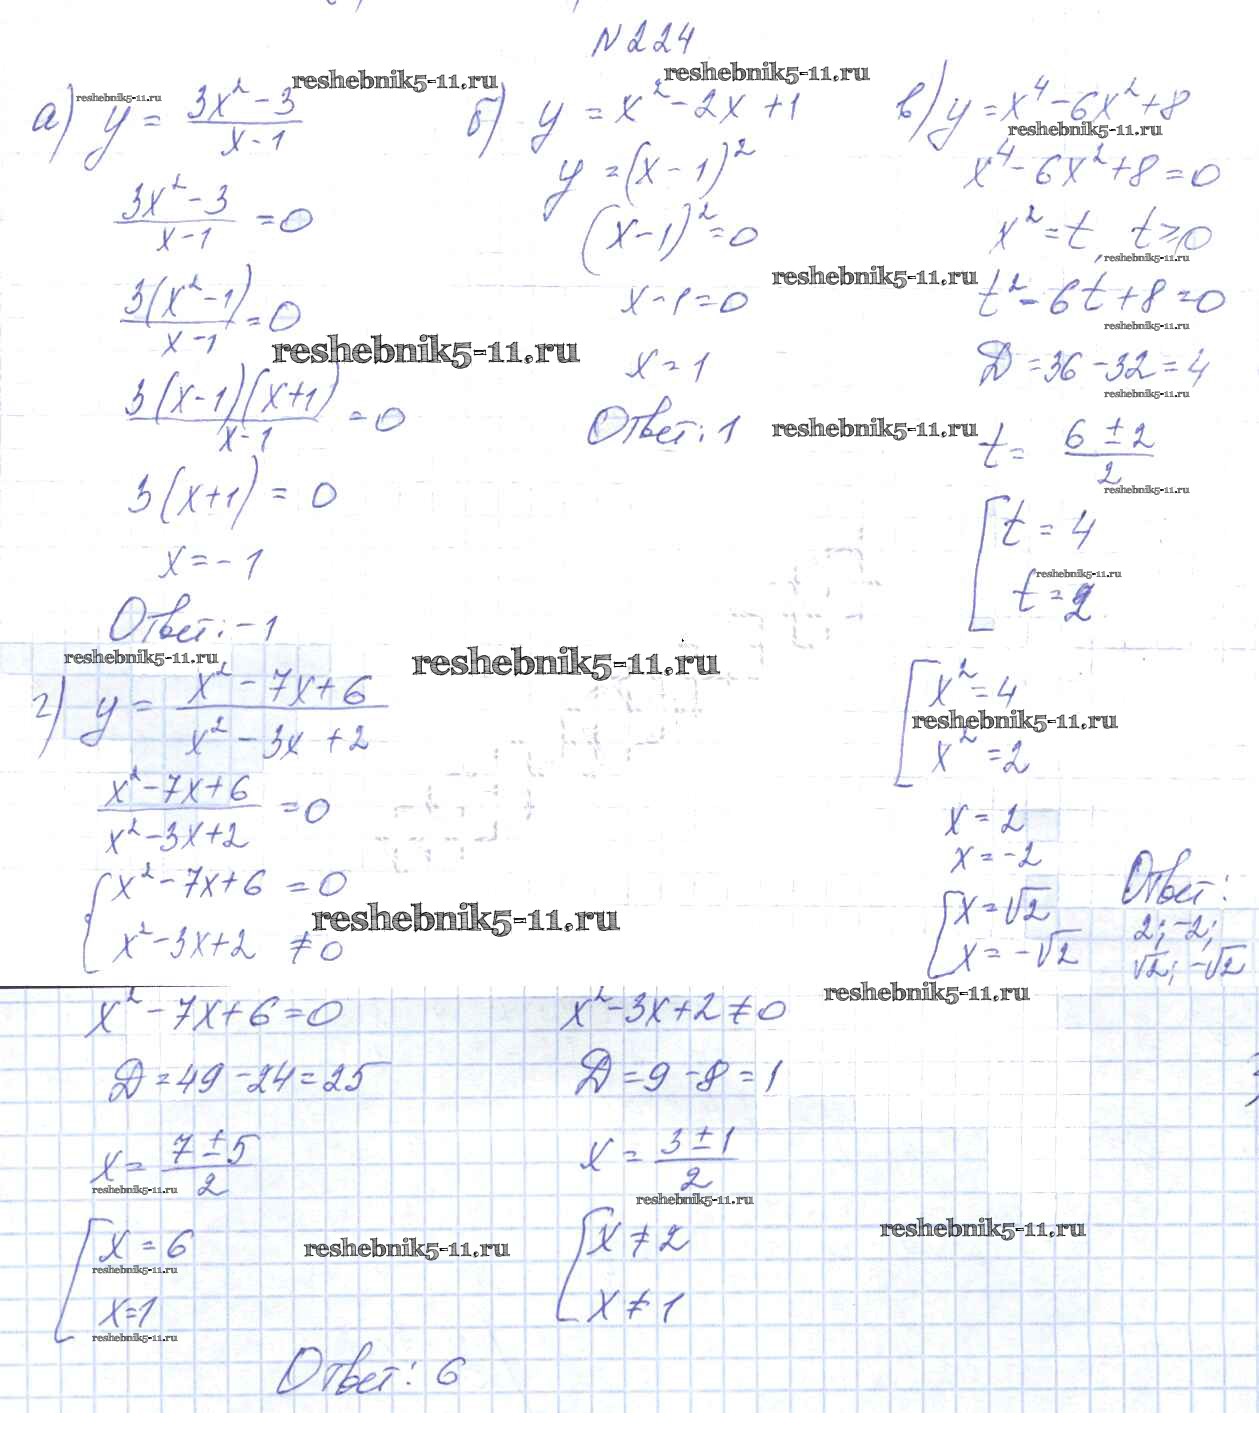 N224
reshebnik5-11.ru
reshebnik5-11.ru
reshebnik5-11.ru
а) y = (3x² - 3)/(x - 1)
(3x² - 3)/(x - 1) = 0
3(x² - 1)/(x - 1) = 0
reshebnik5-11.ru
3(x - 1)(x + 1)/(x - 1) = 0
3(x + 1) = 0
x = -1
Ответ: -1
reshebnik5-11.ru
б) y = x² - 2x + 1
y = (x - 1)²
(x - 1)² = 0
reshebnik5-11.ru
x - 1 = 0
x = 1
Ответ: 1
reshebnik5-11.ru
в) y = x⁴ - 6x² + 8
reshebnik5-11.ru
x⁴ - 6x² + 8 = 0
x² = t, t ≥ 0
reshebnik5-11.ru
t² - 6t + 8 = 0
reshebnik5-11.ru
Д = 36 - 32 = 4
reshebnik5-11.ru
t = (6 ± 2)/2
reshebnik5-11.ru
[ t = 4
reshebnik5-11.ru
t = 2
[ x² = 4
reshebnik5-11.ru
x² = 2
x = 2
x = -2
[ x = √2
x = -√2
Ответ:
2; -2;
√2; -√2
reshebnik5-11.ru
г) y = (x² - 7x + 6)/(x² - 3x + 2)
(x² - 7x + 6)/(x² - 3x + 2) = 0
{ x² - 7x + 6 = 0
reshebnik5-11.ru
x² - 3x + 2 ≠ 0
reshebnik5-11.ru
x² - 7x + 6 = 0
Д = 49 - 24 = 25
x = (7 ± 5)/2
reshebnik5-11.ru
[ x = 6
reshebnik5-11.ru
reshebnik5-11.ru
x = 1
reshebnik5-11.ru
x² - 3x + 2 ≠ 0
Д = 9 - 8 = 1
x = (3 ± 1)/2
reshebnik5-11.ru
[ x ≠ 2
reshebnik5-11.ru
x ≠ 1
Ответ: 6